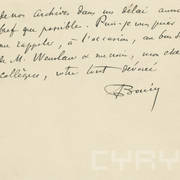 de nos archives dans un délai aussi
bref que possible. Puis-je vous prier de
me rappeler, à l'occasion, au bon souvenir
de M. Wenslaw et mener, mon cher
collègue, votre tout dévoué
CYRY